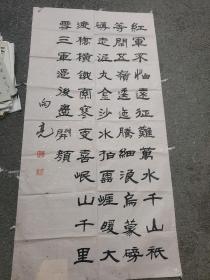 紅軍不怕遠征難萬水千山祇
等閒五嶺逶迤騰細浪烏蒙磅
礴走泥丸金沙水拍雲崖暖大
渡橋橫鐵索寒更喜岷山千里
雪三軍過後盡開顏
向亮